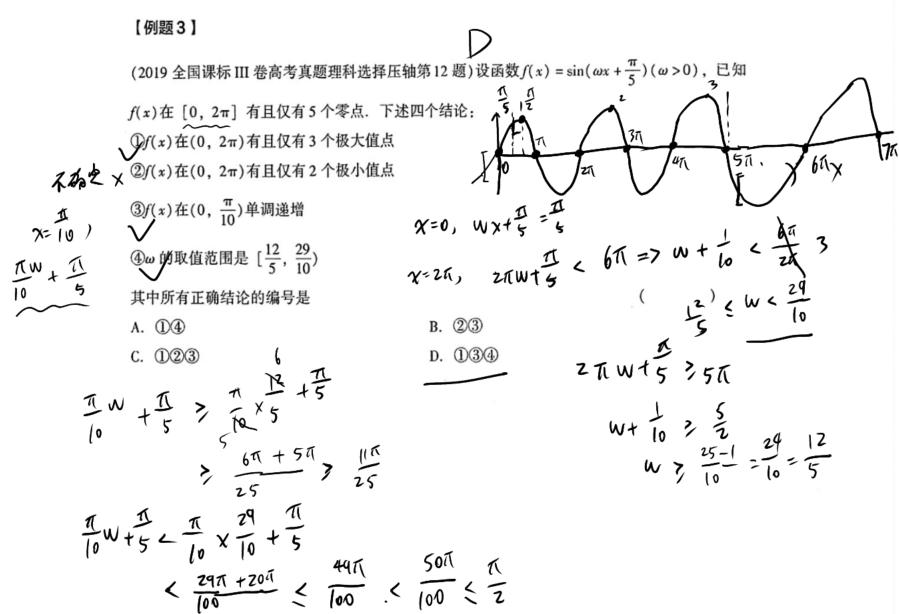 【例题3】
D
(2019 全国课标 III 卷高考真题理科选择压轴第 12 题)设函数f(x) = sin(ωx + π/5)(ω > 0)，已知
f(x)在 [0, 2π] 有且仅有 5 个零点．下述四个结论：
①f(x)在(0, 2π)有且仅有 3 个极大值点
②f(x)在(0, 2π)有且仅有 2 个极小值点
③f(x)在(0, π/10)单调递增
④ω 的取值范围是 [12/5, 29/10)
其中所有正确结论的编号是
( )
A. ①④
B. ②③
C. ①②③
D. ①③④
不确定 ×
x = π/10 ,
πw/10 + π/5
π/5 π/2
1 2 3
0 π 2π 3π 4π 5π . 6π x 7π
x=0, wx + π/5 = π/5
x=2π, 2πw + π/5 < 6π => w + 1/10 < 6π/2π 3
12/5 ≤ w < 29/10
2πw + π/5 ≥ 5π
w + 1/10 ≥ 5/2
w ≥ 25-1/10 = 24/10 = 12/5
π/10 w + π/5 ≥ π/10 × 12/5 + π/5
5 6
≥ 6π + 5π/25 ≥ 11π/25
π/10 w + π/5 < π/10 × 29/10 + π/5
< 29π + 20π/100 ≤ 49π/100 . < 50π/100 ≤ π/2